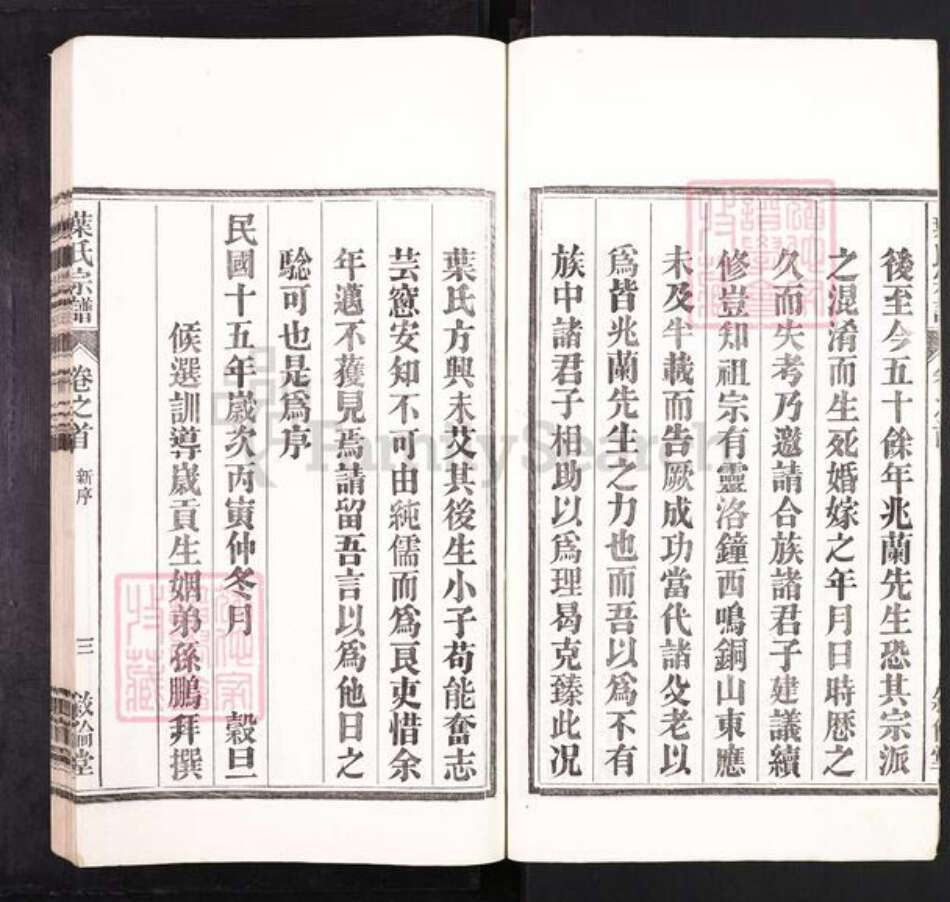 後至今五十餘年兆蘭先生恐其宗派
之混淆而生死婚嫁之年月日時歷之
久而失考乃邀請合族諸君子建議續
修豈知祖宗有靈洛鐘西鳴銅山東應
未及半載而告厥成功當代諸父老以
爲皆兆蘭先生之力也而吾以爲不有
族中諸君子相助以爲理曷克臻此况
葉氏方興未艾其後生小子苟能奮志
芸窻安知不可由純儒而爲良吏惜余
年邁不獲見焉請留吾言以爲他日之
騐可也是爲序
民國十五年歲次丙寅仲冬月 穀旦
候選訓導歲貢生姻弟孫鵬拜撰
葉氏宗譜 卷之首 新序 三 堂
FamilySearch